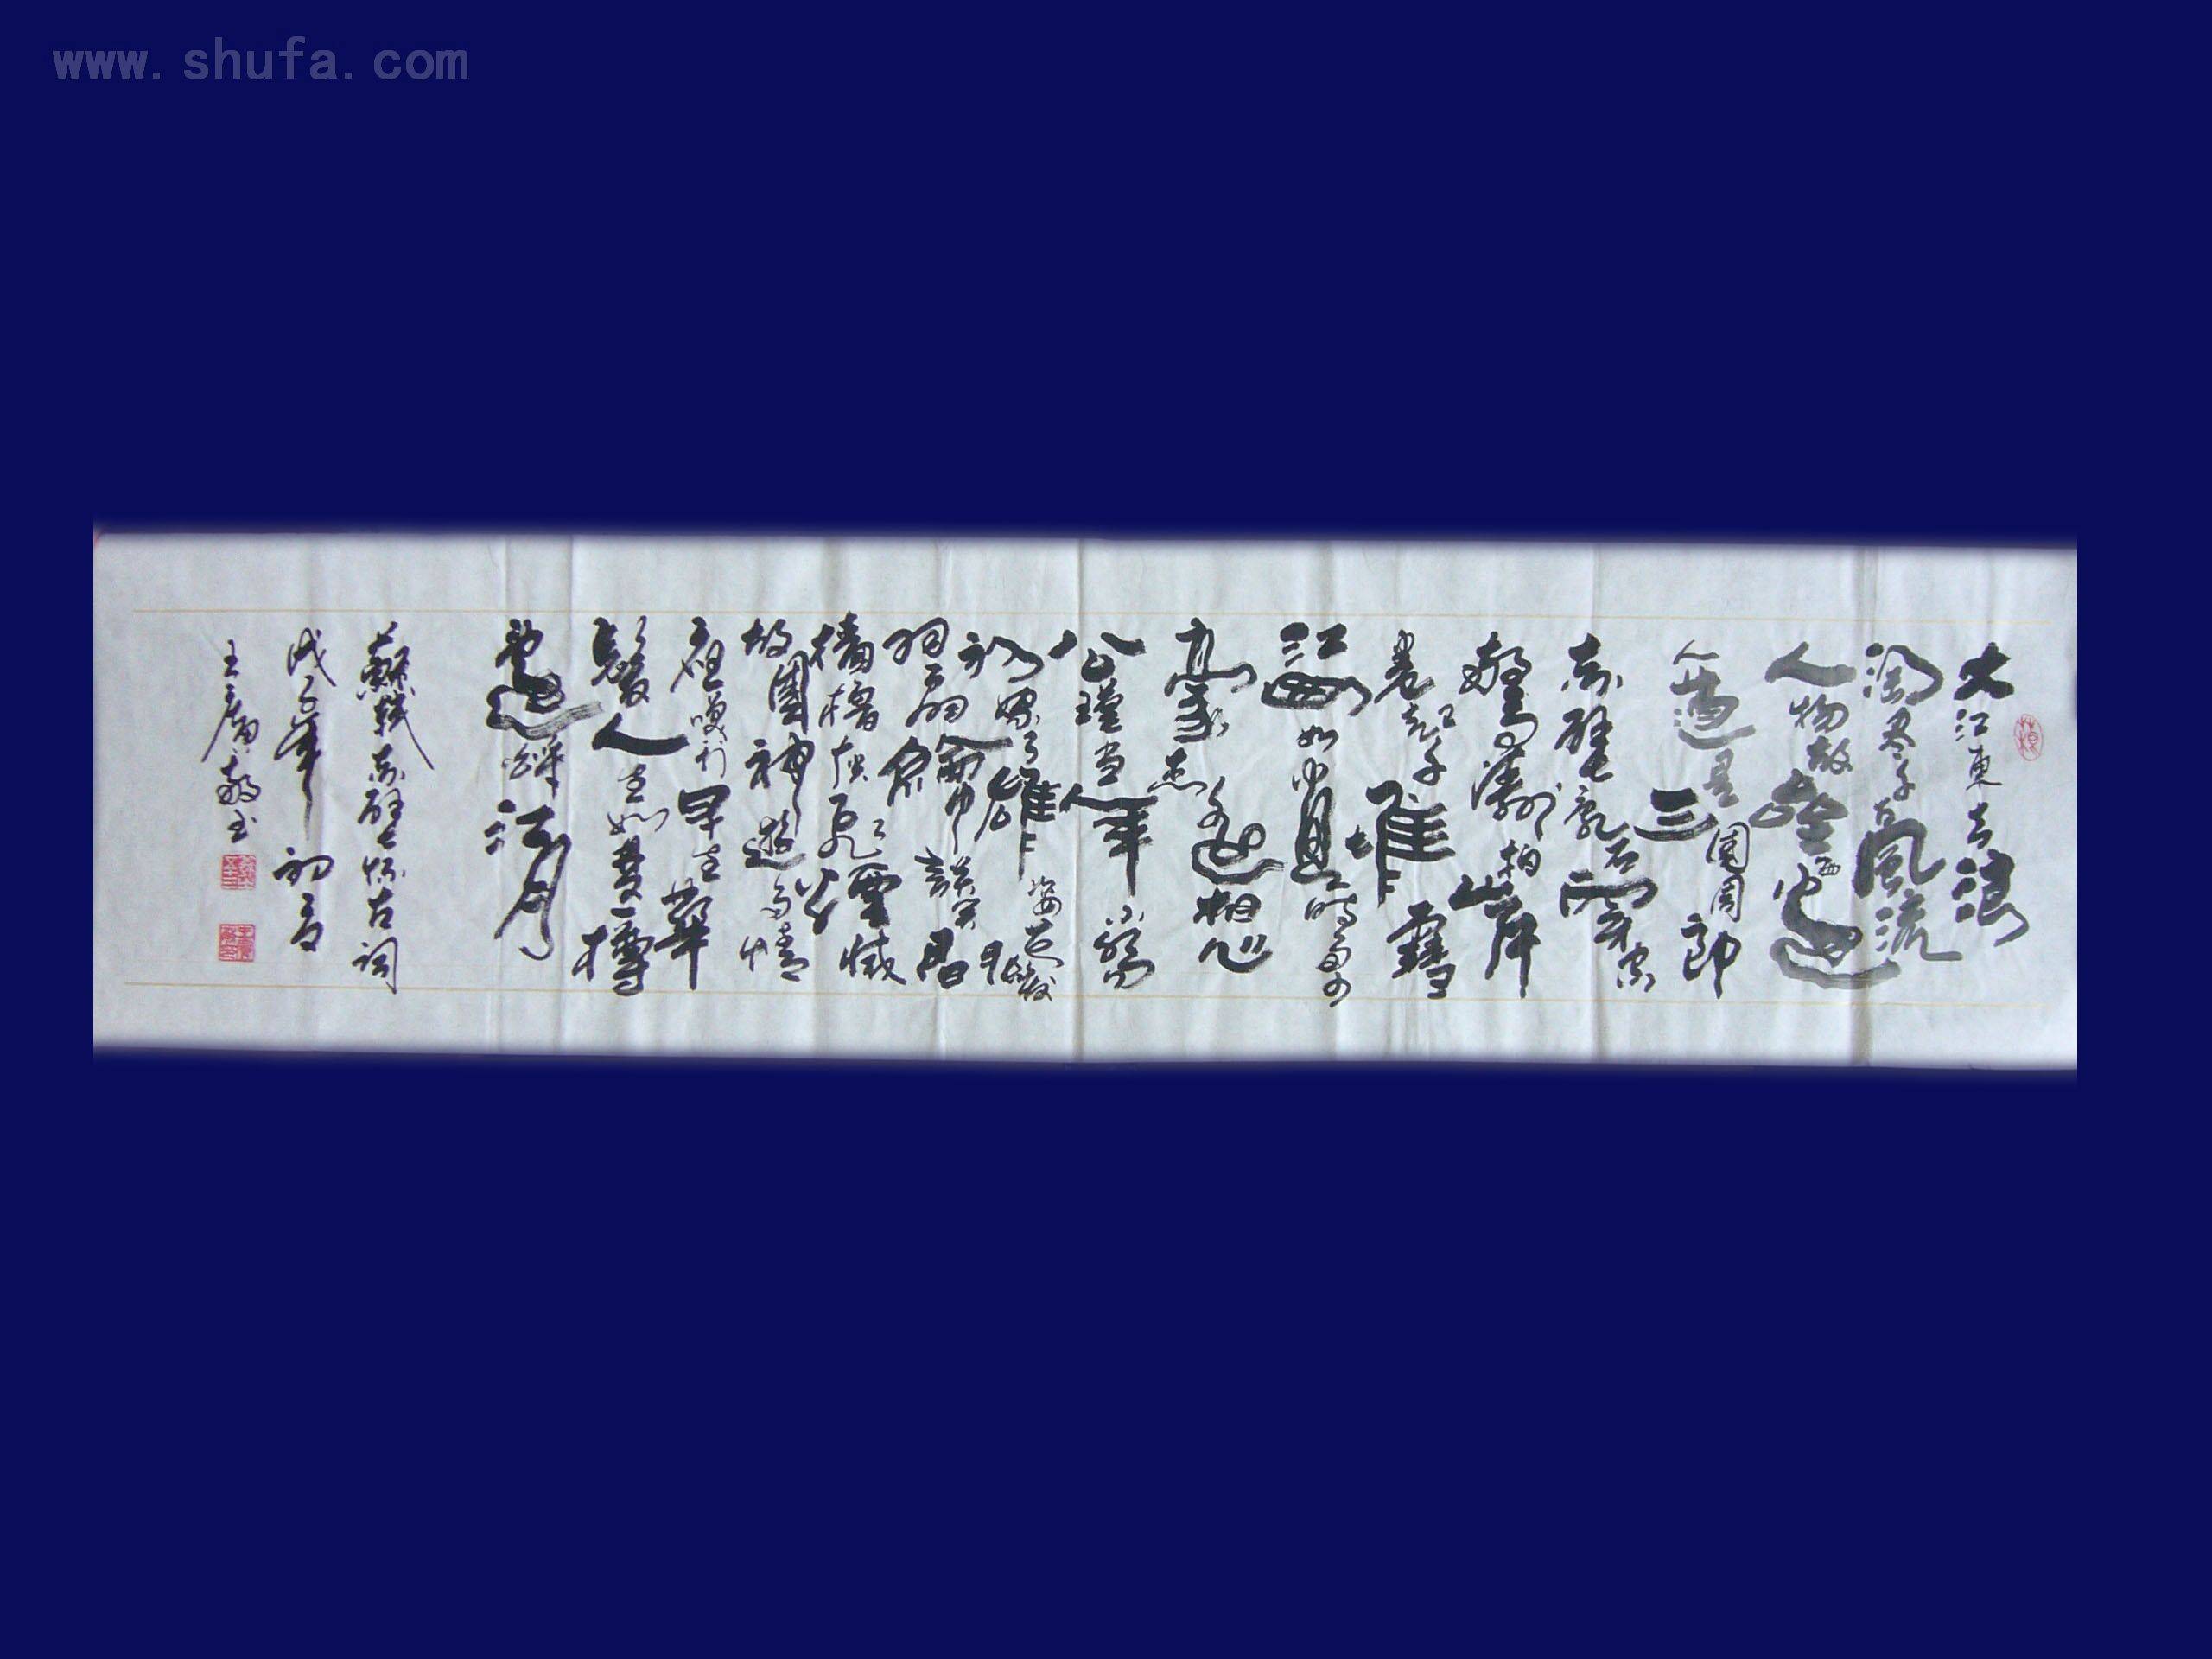 www.shufa.com
大江東去浪
淘尽千古風流
人物故壘西邊
人道是三國周郎
赤壁亂石穿空
驚濤拍岸
卷起千堆雪
江山如畫一時多少
豪杰遥想
公瑾當年小喬
初嫁了雄姿英發
羽扇綸巾談笑間
檣櫓灰飛煙滅
故國神遊多情
應笑我早生華
髮人生如夢一樽
還酹江月
蘇軾赤壁怀古詞
戊子年初春
王廣 書